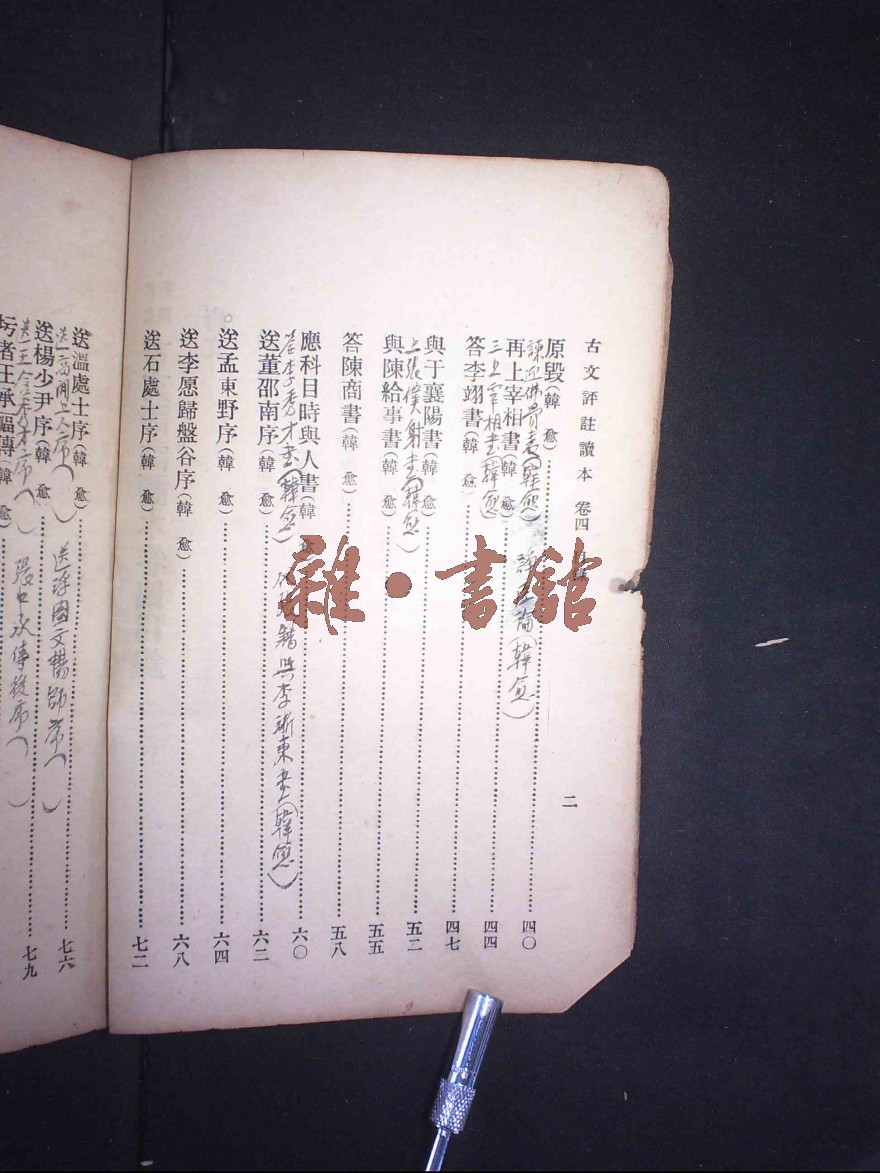 古文評註讀本 卷四 二
原毀(韓愈)
四〇
諫迎佛骨表(韓愈) 諱(韓愈)
再上宰相書(韓愈)
四四
三上宰相書(韓愈)
答李翊書(韓愈)
四七
與于襄陽書(韓愈)
五二
上張僕射書(韓愈)
與陳給事書(韓愈)
五五
答陳商書(韓愈)
五八
應科目時與人書(韓愈)
六〇
答李秀才書(韓愈) 代張籍與李浙東書(韓愈)
送董邵南序(韓愈)
六二
送孟東野序(韓愈)
六四
送李愿歸盤谷序(韓愈)
六八
送石處士序(韓愈)
七二
送溫處士序(韓愈)
七六
送高閑上人序() 送浮圖文暢師序()
送楊少尹序(韓愈)
七九
送王秀才序() 張中丞傳後序()
圬者王承福傳(韓愈)
雜·書館